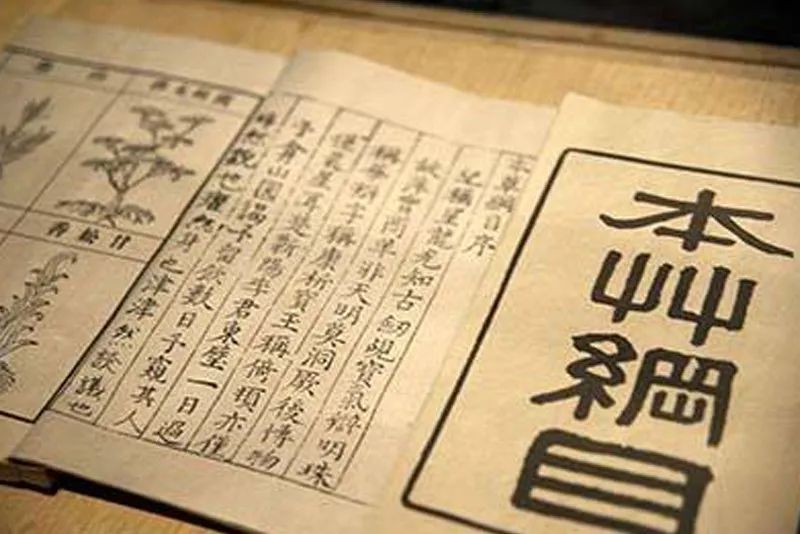 本艸綱目
本草綱目序
紀稱望龍光知古劒覘寶氣辯明珠
故萍實商羊非天明莫洞厥後博物
稱華辯字稱康析寶玉稱倚頓亦僅
僅晨星耳楚蘄陽李君東壁一日過
予弇山園謁予留飲數日予窺其人
睟然貌也癯然身也津津然談議也
甘松香